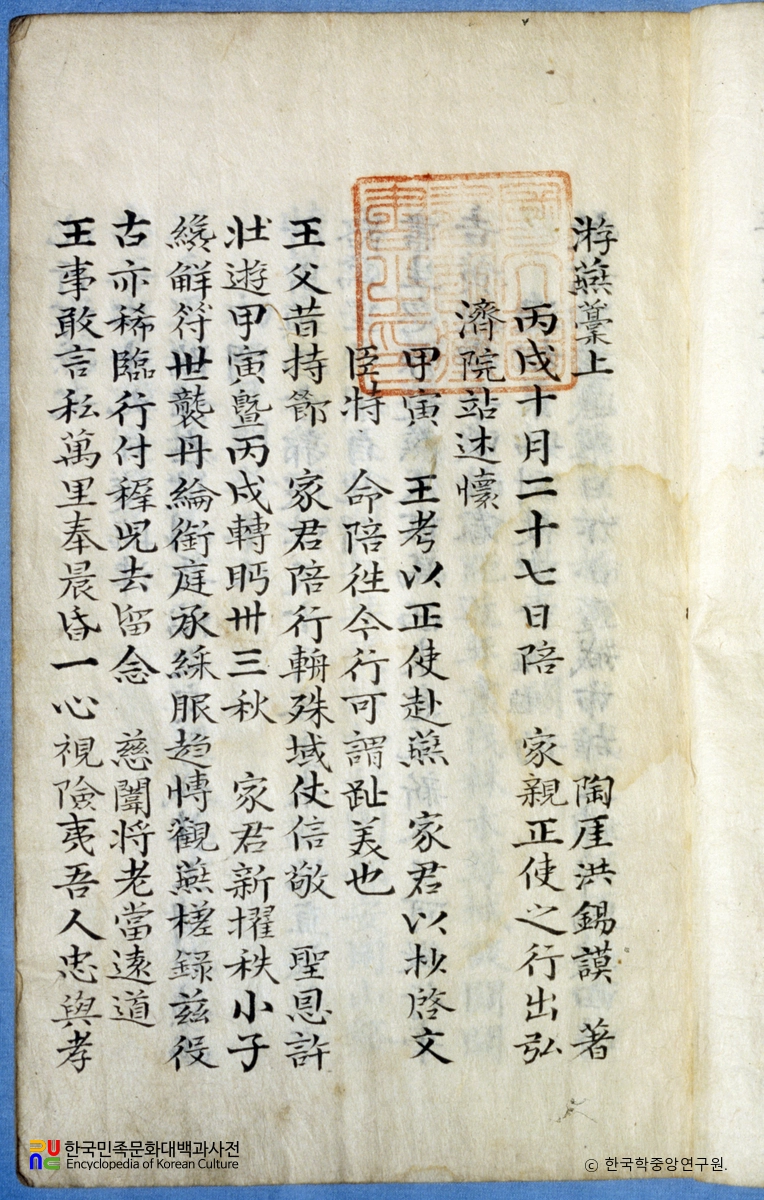 游燕藁上 陶厓洪錫謨 著
丙戌十月二十七日陪 家親正使之行出弘
濟院站述懷
甲寅 王考以正使赴燕 家君以抄啓文
臣特 命陪徃今行可謂趾美也
王父昔持節 家君陪行輈殊域仗信敬 聖恩許
壯遊甲寅曁丙戌轉眄卅三秋 家君新擢秩小子
纔觧符世襲丹綸銜庭承綵服趍慱觀燕槎錄兹役
古亦稀臨行付穉児去留念 慈闈将老當遠道
王事敢言私萬里奉晨昏一心視險夷吾人忠與孝
한국민족문화대백과사전
Encyclopedia of Korean Culture
ⓒ 한국학중앙연구원.